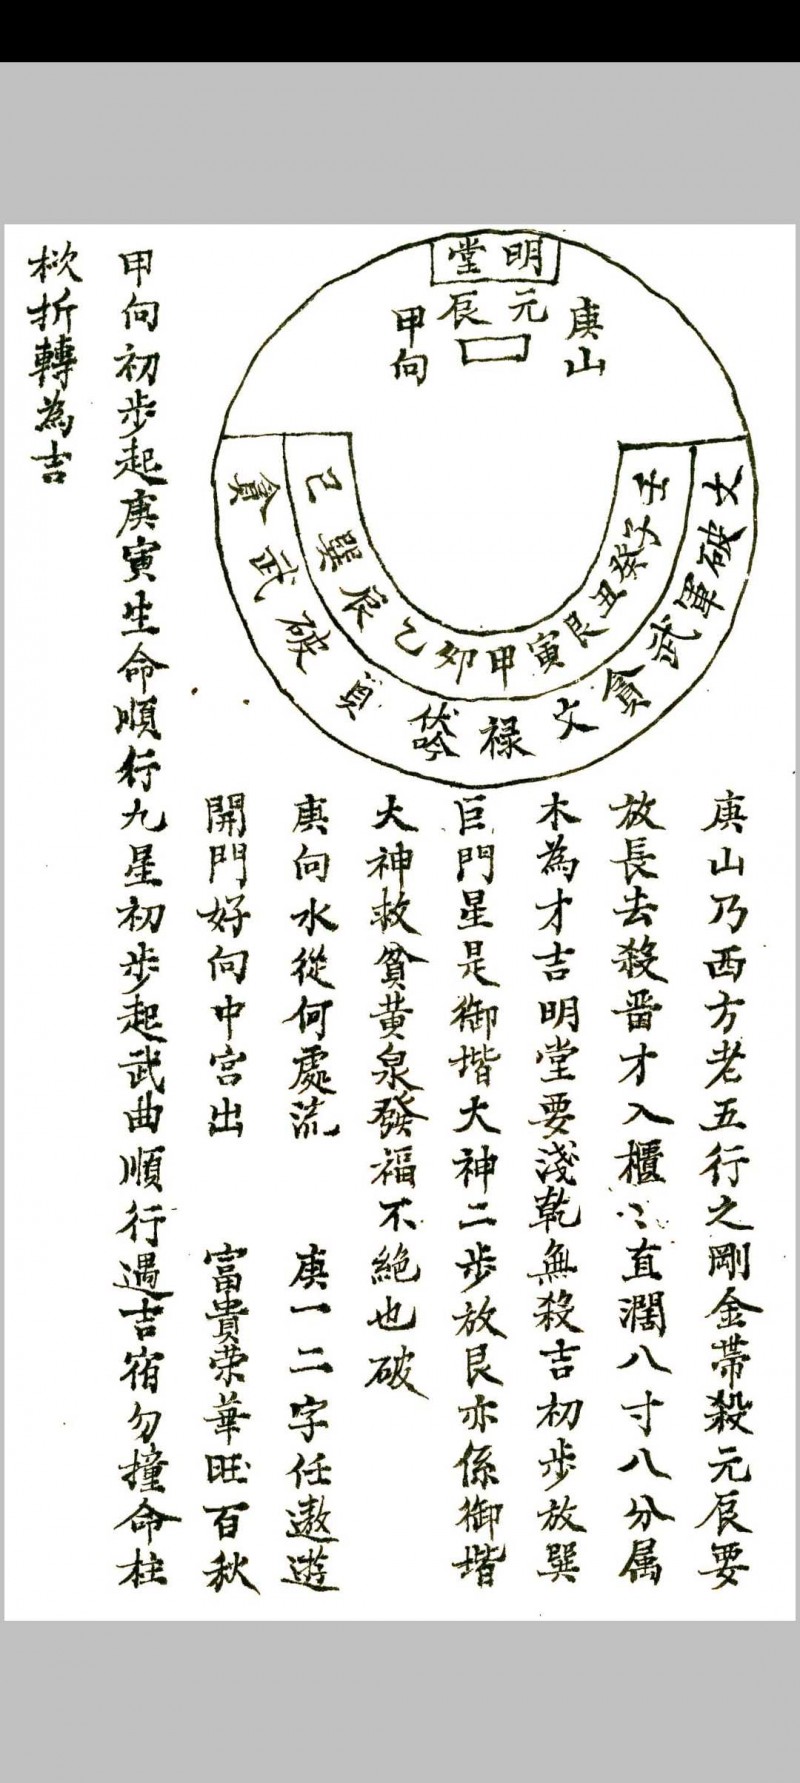 明堂
元辰
庚山
甲向
壬子癸丑艮寅甲卯乙辰巽巳
文破軍武貪文祿伏吟貞破武貪
庚山乃西方老五行之剛金帶殺元辰要
放長去殺番才入櫃〻直濶八寸八分属
木為才吉明堂要淺乾無殺吉初步放巽
巨門星是御堦大神二步放艮亦係御堦
大神救貧黄泉發福不絕也破
庚向水從何處流　庚一二字任遨遊
開門好向中宮出　富貴荣華旺百秋
甲向初步起庚寅生命順行九星初步起武曲順行遇吉宿勿撞命柱
椒折轉為吉